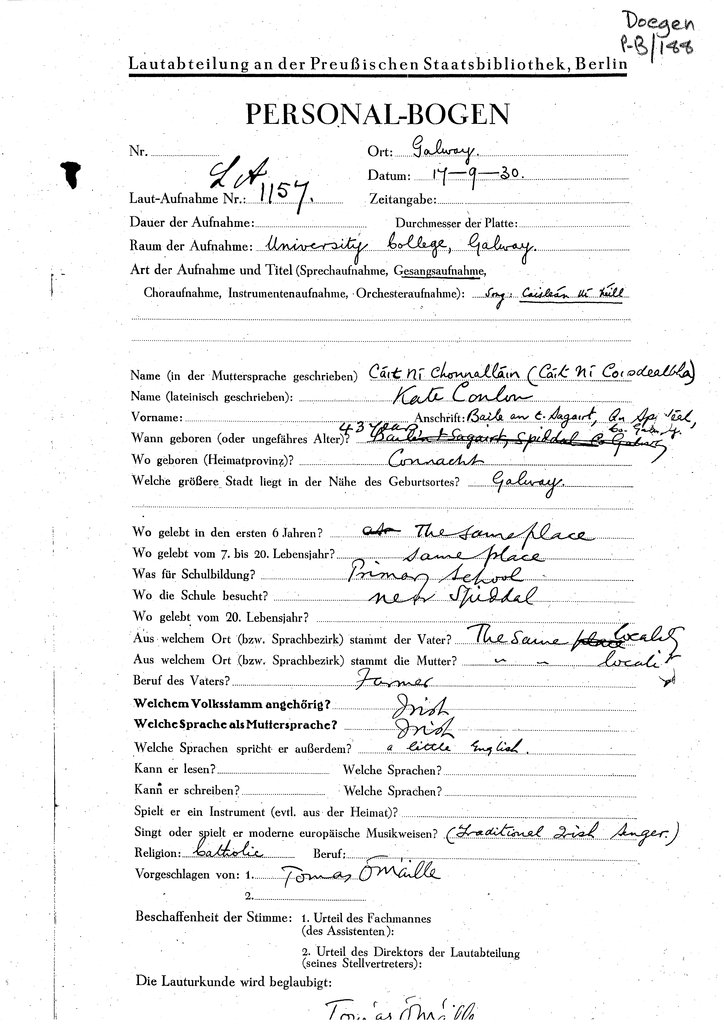 Doegen
P-B/188
Lautabteilung an der Preußischen Staatsbibliothek, Berlin
PERSONAL-BOGEN
Nr. Ort: Galway.
Datum: 17-9-30.
Laut-Aufnahme Nr.: LA 1157. Zeitangabe:
Dauer der Aufnahme: Durchmesser der Platte:
Raum der Aufnahme: University College, Galway.
Art der Aufnahme und Titel (Sprechaufnahme, Gesangsaufnahme,
Choraufnahme, Instrumentenaufnahme, Orchesteraufnahme): Song: Caisleán Uí Néill
Name (in der Muttersprache geschrieben) Cáit Ní Chonnalláin (Cáit Ní Coisdealbha)
Name (lateinisch geschrieben): Kate Conlon
Vorname: Anschrift: Baile an t-Sagairt, An Spidéal,
Co. Galway.
Wann geboren (oder ungefähres Alter)? 43 years Baile an t-Sagairt, Spiddal Co Galway
Wo geboren (Heimatprovinz)? Connacht
Welche größere Stadt liegt in der Nähe des Geburtsortes? Galway.
Wo gelebt in den ersten 6 Jahren? The same place
Wo gelebt vom 7. bis 20. Lebensjahr? same place
Was für Schulbildung? Primary School
Wo die Schule besucht? near Spiddal
Wo gelebt vom 20. Lebensjahr?
Aus welchem Ort (bzw. Sprachbezirk) stammt der Vater? The same place locality
Aus welchem Ort (bzw. Sprachbezirk) stammt die Mutter? " " locality
Beruf des Vaters? Farmer
Welchem Volksstamm angehörig? Irish
Welche Sprache als Muttersprache? Irish
Welche Sprachen spricht er außerdem? a little English.
Kann er lesen? Welche Sprachen?
Kann er schreiben? Welche Sprachen?
Spielt er ein Instrument (evtl. aus der Heimat)?
Singt oder spielt er moderne europäische Musikweisen? (Traditional Irish Singer.)
Religion: Catholic Beruf:
Vorgeschlagen von: 1. Tomás Ó Máille
2.
Beschaffenheit der Stimme: 1. Urteil des Fachmannes
(des Assistenten):
2. Urteil des Direktors der Lautabteilung
(seines Stellvertreters):
Die Lauturkunde wird beglaubigt:
Tomás Ó Máille